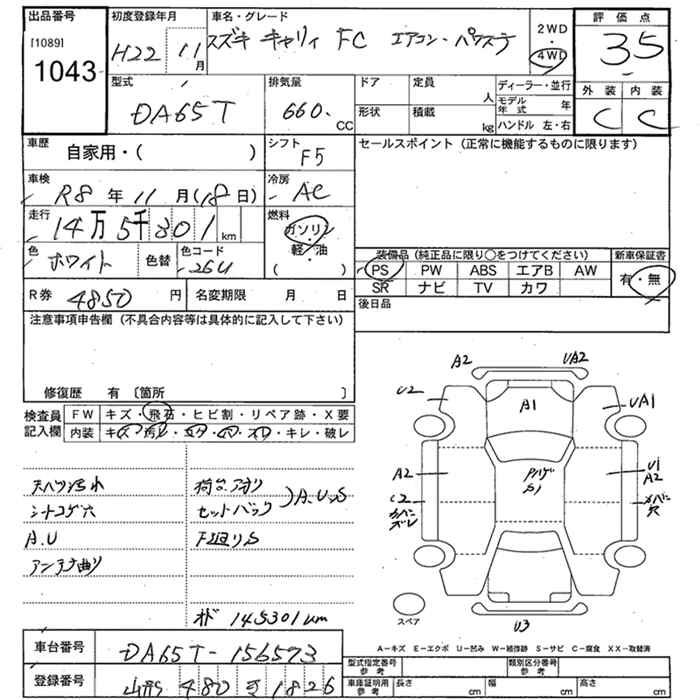 出品番号 初度登録年月 車名・グレード 2WD 評価点
[1089] 1043 H22 11月 スズキ キャリィ FC エアコン・パワステ 4WD 3.5
型式 排気量 ドア 定員 人 ディーラー・並行 外装 内装
DA65T 660. CC 形状 積載 kg モデル年式 年 C C
ハンドル 左・右
車歴 自家用・( ) シフト F5 セールスポイント (正常に機能するものに限ります)
車検 R8年 11月(18日) 冷房 AC
走行 14万5千301km 燃料 ガソリン 軽・油 ( )
色 ホワイト 色替 色コード 26U
装備品 (純正品に限り○をつけてください) 新車保証書
PS PW ABS エアB AW 有・無
SR ナビ TV カワ
R券 4850円 名変期限 月 日 後日品
注意事項申告欄 (不具合内容等は具体的に記入して下さい)
修復歴 有 〔箇所 〕
検査員記入欄 FW キズ・飛石・ヒビ割・リペア跡・X要
内装 キズ・汚レ・コゲ・穴・スレ・キレ・破レ
天ハリ汚れ
シートコゲ穴
A.U
アンテナ曲り
荷台アオリ
セットバック
A.U.S
下廻りS
オド 145301km
A2 UA2
U2 A1 UA1
A2 U1 A2
S1
U3
スペア
A-キズ E-エクボ U-凹み W-補修跡 S-サビ C-腐食 XX-取替済
車台番号 DA65T-156573
登録番号 山形 480 1826
型式指定番号 参考 類別区分番号 参考
車庫証明用 参考 長さ cm 幅 cm 高さ cm